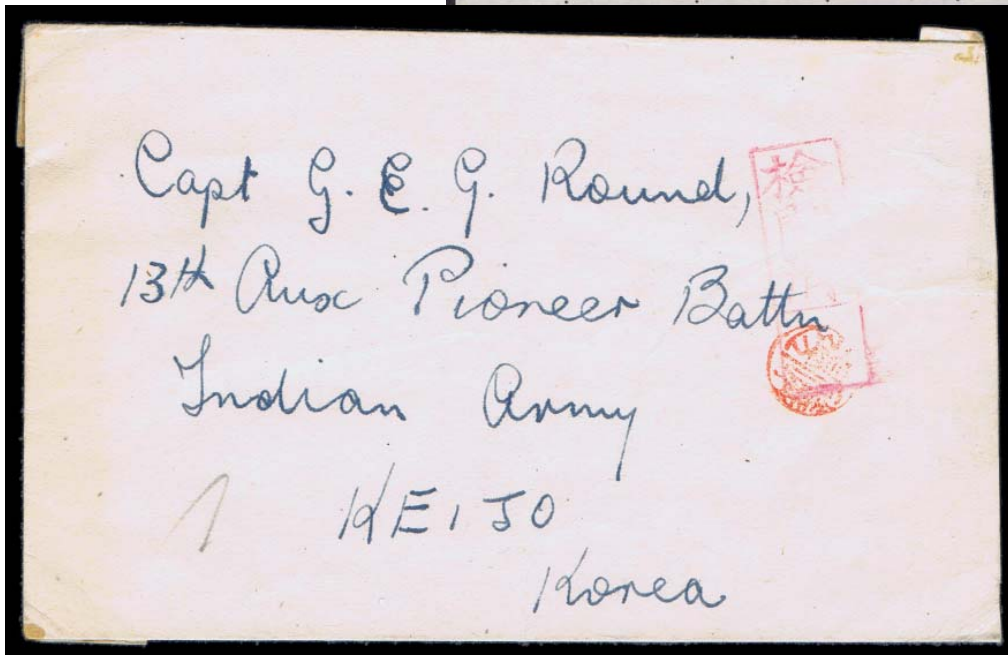 Capt G. E. G. Round,
13th Aux Pioneer Battn
Indian Army
KEIJO
Korea
検